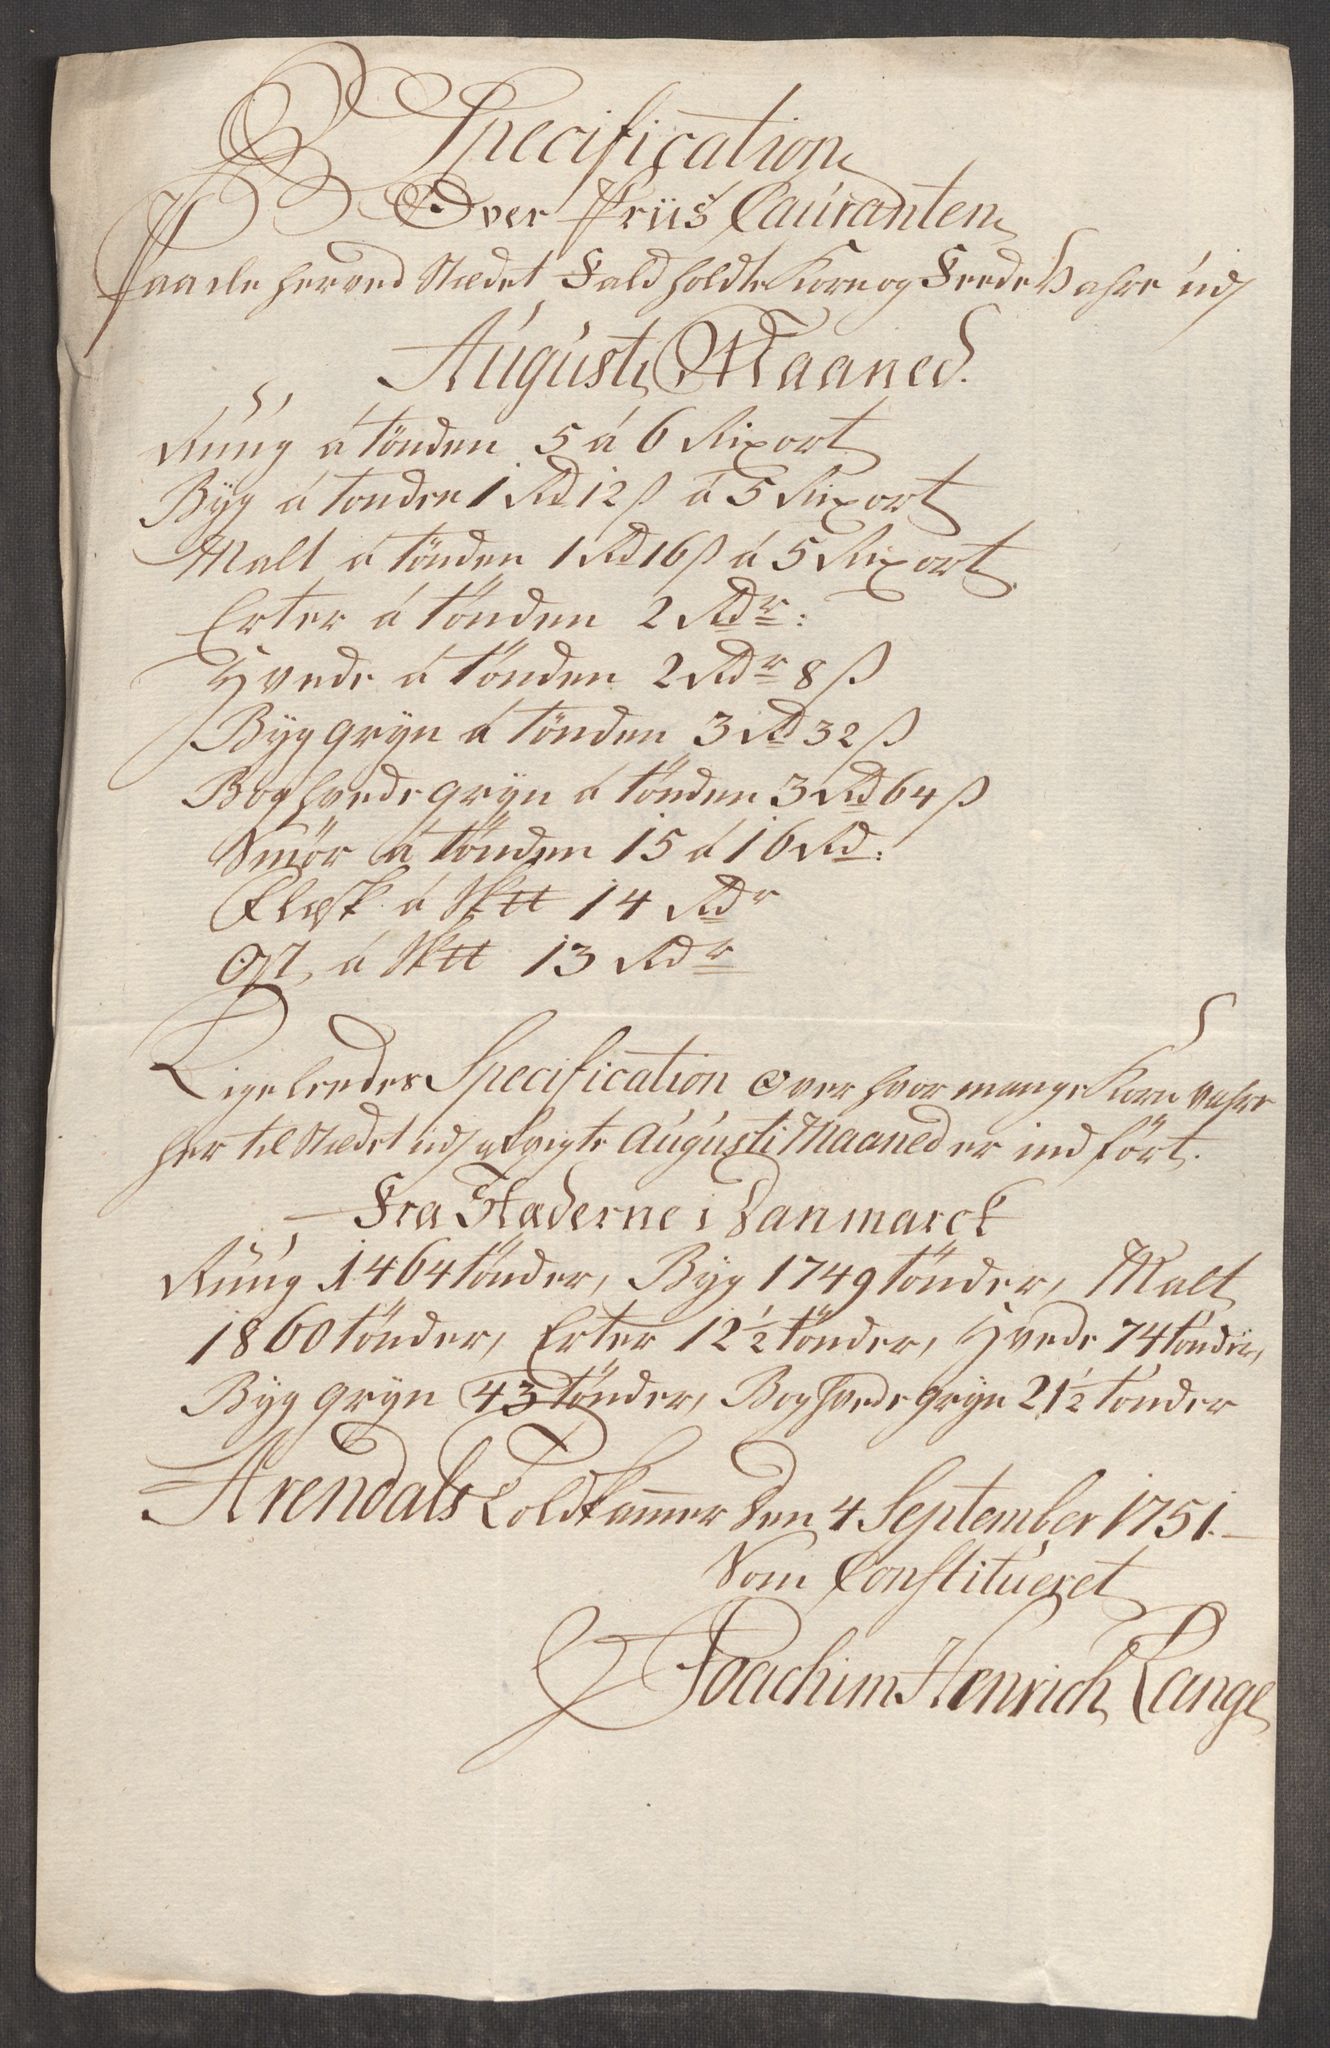 Specification
Over Priis Cauranten
Paa de her ved Stædet Fald holdte Korn og Feede Vahre udj
Augusti Maaned.
Rúúg á tönden 5 á 6 Rixort
Byg á tonden 1 Rd 12 ß á 5 Rixort
Malt á tönden 1 Rd 16 ß á 5 Rixort
Erter á tönden 2 Rdr:
Hvede á tönden 2 Rdr 8 ß
Byg gryn á tönden 3 Rd 32 ß
Boghvede gryn á tönden 3 Rd 64 ß
Smör á tönden 15 á 16 Rd:
Flesk á Sk℔ 14 Rdr
Ost á Sk℔ 13 Rdr
Ligeleedes Specification over hvor mange Korn vahre
her til Stædet udj afvigte Augusti Maaned er indfört.
Fra Stæderne i Danmarck
Rúúg 1464 tönder, Byg 1749 tönder, Malt
1860 tönder, Erter 12½ tönder, Hvede 74 tönder,
Byg gryn 43 tönder, Boghvede gryn 21½ tönder
Arendals Toldkammer den 4 September 1751.
Som Constitúeret
Joachim Henrich Lange